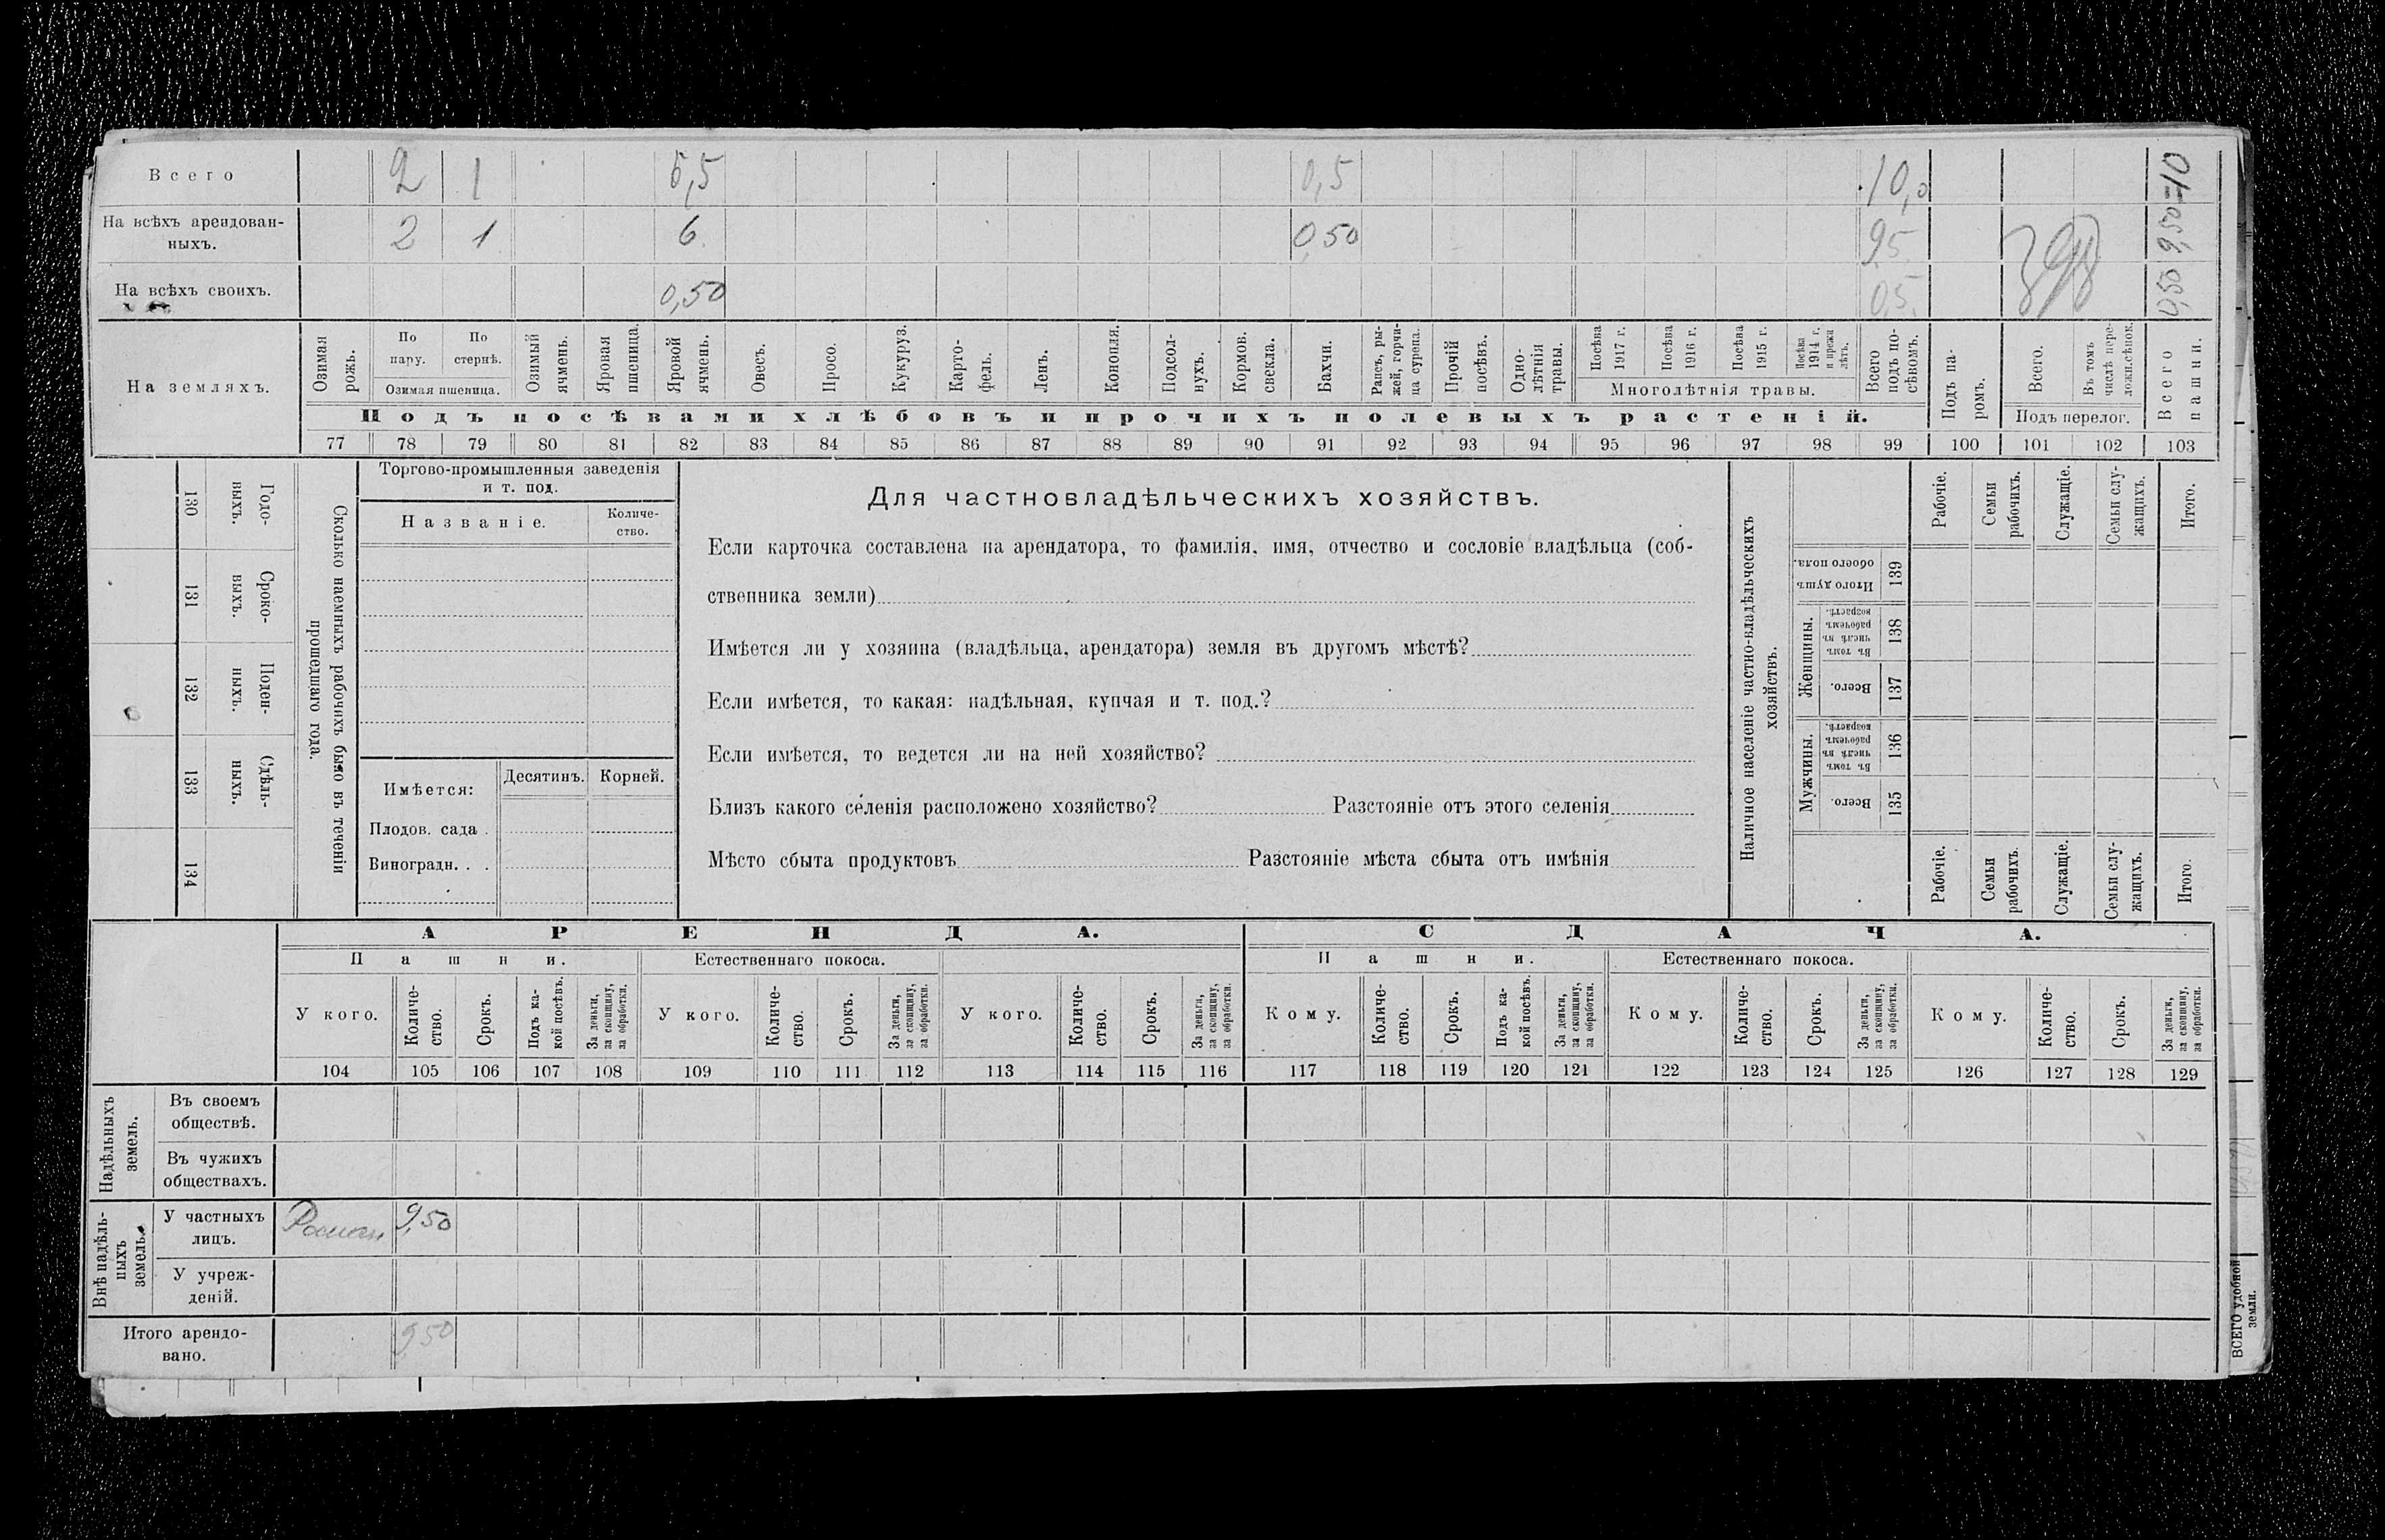 Всего 2 1 6,5 0,5 10,0
На всѣхъ арендован-
ныхъ. 2 1 6 0,50 9,5
На всѣхъ своихъ. 0,50 0,5
398
0,50 9,50=10
На земляхъ.
Озимая рожь.
По пару.
По стернѣ.
Озимая пшеница.
Озимый ячмень.
Яровая пшеница.
Яровой ячмень.
Овесъ.
Просо.
Кукуруз.
Карто-
фель.
Ленъ.
Конопля.
Подсол-
нухъ.
Кормов. свекла.
Бахчи.
Рапсъ, ры-
жей, горчи-
ца сурепа.
Прочій посѣвъ.
Одно-
лѣтнія травы.
Посѣва 1917 г.
Посѣва 1916 г.
Посѣва 1915 г.
Посѣва 1914 г. и прежн лѣтъ.
Многолѣтнія травы.
Всего подъ по-
сѣвомъ.
Подъ посѣвами хлѣбовъ и прочихъ полевыхъ растеній.
Подъ па-
ромъ.
Всего.
Въ томъ числѣ пере-
ложн.сѣнок.
Подъ перелог.
Всего пашни.
77 78 79 80 81 82 83 84 85 86 87 88 89 90 91 92 93 94 95 96 97 98 99 100 101 102 103
130 Годо-
выхъ.
131 Сроко-
выхъ.
132 Поден-
ныхъ.
133 Сдѣль-
ныхъ.
134
Сколько наемныхъ рабочихъ было въ теченіи
прошедшаго года.
Торгово-промышленныя заведенія
и т. под.
Названіе.
Количе-
ство.
Имѣется:
Десятинъ. Корней.
Плодов. сада .
Виноградн. . .
Для частновладѣльческихъ хозяйствъ.
Если карточка составлена на арендатора, то фамилія, имя, отчество и сословіе владѣльца (соб-
ственника земли)
Имѣется ли у хозяина (владѣльца, арендатора) земля въ другомъ мѣстѣ?
Если имѣется, то какая: надѣльная, купчая и т. под.?
Если имѣется, то ведется ли на ней хозяйство?
Близъ какого селенія расположено хозяйство? Разстояніе отъ этого селенія
Мѣсто сбыта продуктовъ Разстояніе мѣста сбыта отъ имѣнія
Наличное населеніе частно-владѣльческихъ
хозяйствъ.
Рабочіе.
Семьи рабочихъ.
Служащіе.
Семьи слу-
жащихъ.
Итого.
Итого душъ обоего пола. 139
Женщины.
Въ томъ числѣ въ рабочемъ возрастѣ. 138
Всего. 137
Мужчины.
Въ томъ числѣ въ рабочемъ возрастѣ. 136
Всего. 135
Рабочіе.
Семьи рабочихъ.
Служащіе.
Семьи слу-
жащихъ.
Итого.
АРЕНДА. СДАЧА.
Пашни. Естественнаго покоса. Пашни. Естественнаго покоса.
У кого.
Количе-
ство.
Срокъ.
Подъ ка-
кой посѣвъ.
За деньги,
за скопщину,
за обработки.
У кого.
Количе-
ство.
Срокъ.
За деньги,
за скопщину,
за обработки.
У кого.
Количе-
ство.
Срокъ.
За деньги,
за скопщину,
за обработки.
Кому.
Количе-
ство.
Срокъ.
Подъ ка-
кой посѣвъ.
За деньги,
за скопщину,
за обработки.
Кому.
Количе-
ство.
Срокъ.
За деньги,
за скопщину,
за обработки.
Кому.
Количе-
ство.
Срокъ.
За деньги,
за скопщину,
за обработки.
104 105 106 107 108 109 110 111 112 113 114 115 116 117 118 119 120 121 122 123 124 125 126 127 128 129
Надѣльныхъ
земель.
Въ своемъ
обществѣ.
Въ чужихъ
обществахъ.
Внѣ надѣль-
ныхъ
земель.
У частныхъ
лицъ. 9,50
У учреж-
деній.
Итого арендо-
вано. 950
ВСЕГО удобной
земли.